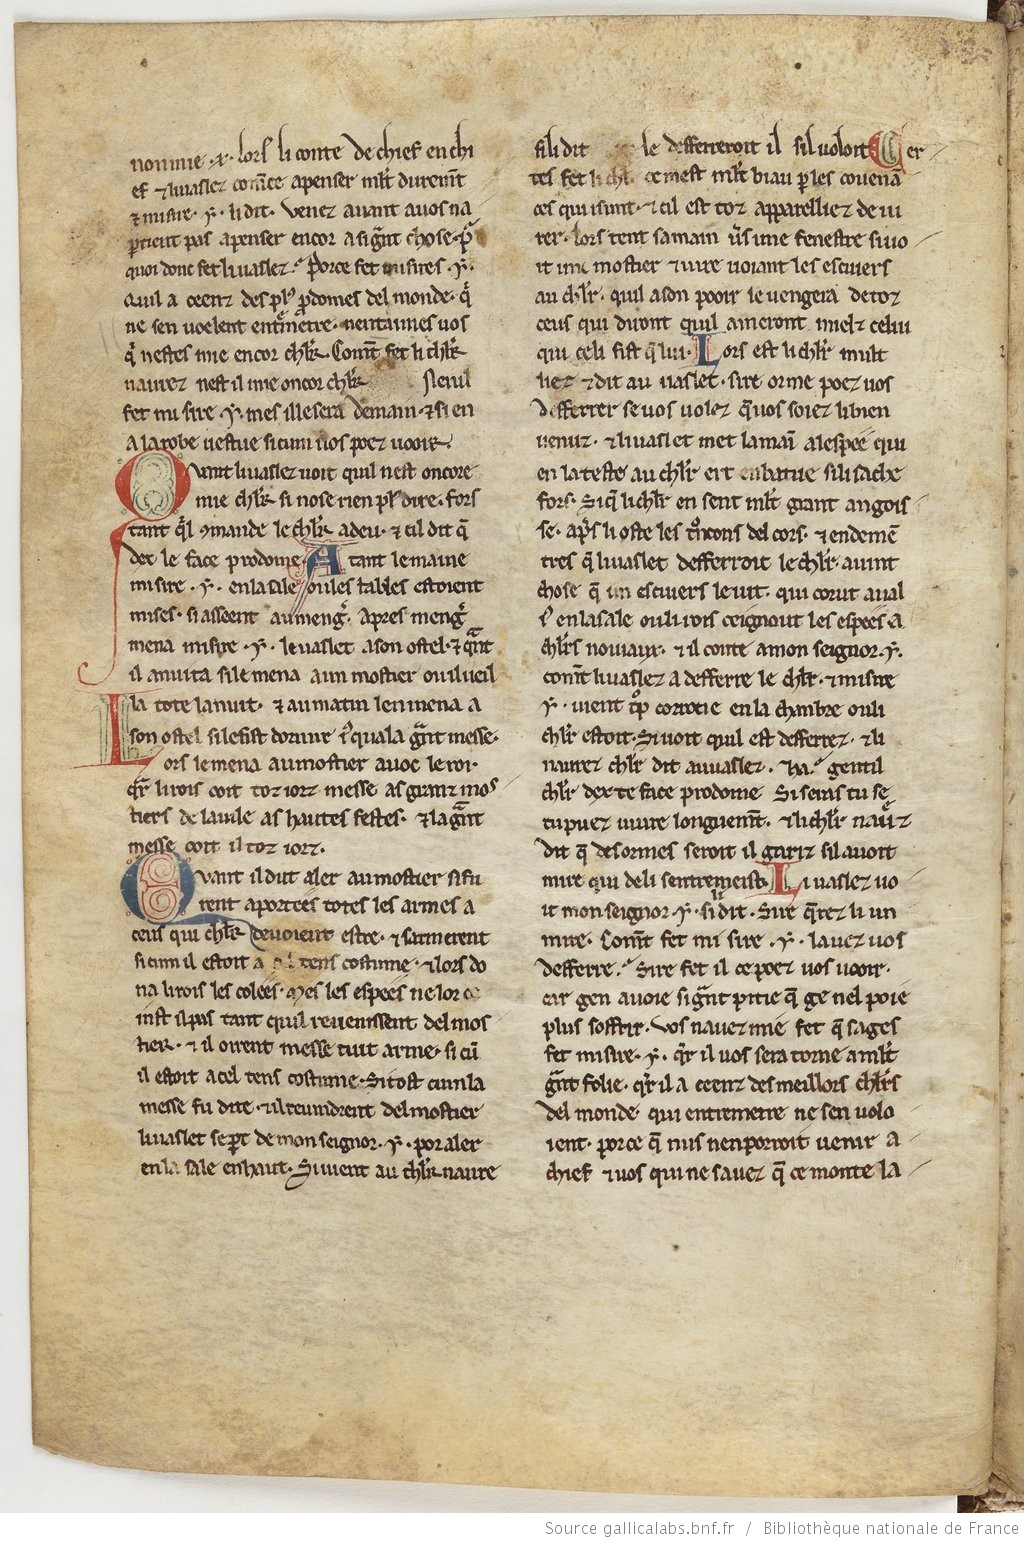 nonmie .x. lors li conte de chief en chi
ef ⁊ li uaslez com̄ce a penser ml̄t durem̄t
⁊ misire .y. li dit. venez auant a uos na
ꝑtient pas a penser encor a sig̃nt chose. p̃
quoi donc fet li uaslez. Porce fet misires .y.
quil a ceenz des pl' p̃domes del monde. q̃
ne sen uoelent ent̃metre. nentaimes uos
q̃ nestes mie encor chlr̄. Com̄t fet li chlr̄
naurez nest il mie oncor chlr̄ Neuil
fet mi sire .y. mes ille sera demain. ⁊ si en
a la robe uestue si cum uos poez ueoir.
Quant li uaslez uoit quil nest oncore
mie chlr̄ si nose rien pl' dire. fors
tant q̃l 9mande le chlr̄ a deu. ⁊ cil dit q̄
dex le face prodome. A tant lemaine
misire .y. en la sale ou les tables estoient
mises. si asseent au meng̃. Apres meng̃
mena misire .y. le uaslet a son ostel. ⁊ q̃nt
il anuita si le mena a un mostier ou il ueil
la tote la nuit. ⁊ au matin len mena a
son ostel si le fist dormir iq̃ua la g̃nt messe.
Lors le mena au mostier auoc le roi.
q̃r li rois ooit toz iorz messe as granz mos
tiers de la uile as hautes festes. ⁊ la g̃nt
messe ooit il toz iorz.
Quant il dut aler au mostier si fu
rent aportees totes les armes a
ceus qui chlr̄ deuoient estre. ⁊ sarmerent
si cum il estoit a tens costume. ⁊ lors do
na li rois les colées. Mes les espees ne lor ce
inst il pas tant quil reuenissent del mos
tier. ⁊ il oirent messe tuit arme. si cū
il estoit a cel tens costume. Si tost cum la
messe fu dite. ⁊ il reuindrent del mostier
li uaslet se ꝑt de mon seignor .y. por aler
en la sale en haut. Si uient au chlr̄ naure
si li dit le defferreroit il sil uoloit Cer
tes fet li chlr̄ ce mest ml̄t biau ꝑ les couena
ces qui i sunt. ⁊ cil est toz apparelliez de iu
rer. lors tent sa main ũs une fenestre si uo
it un mostier ⁊ iure uoiant les escuiers
au chlr̄. quil a son pooir le uengera de toz
ceus qui diront quil ameront mielz celui
qui celi fist q̄ lui. Lors est li chlr̄ mult
liez ⁊ dit au uaslet. sire orme poez uos
defferrer se uos uolez q̄ uos soiez li bien
uenuz. ⁊ li uaslet met la maī a lespee qui
en la teste au chlr̄ ert enbatue si li sache
fors. Si q̄ li chlr̄ en sent ml̄t grant angois
se. ap̃s li oste les tr̄ncons del cors. ⁊ endemē
tres q̄ li uaslet defferroit le chlr̄. auint
chose q̄ un escuiers le uit. qui corut aual
ī en la sale ou li rois ceignoit les espées. a
chlr̄s nouiaux. ⁊ il conte a mon seignor .y.
com̄t li uaslez a defferre le chlr̄. ⁊ misire
.y. uient t͛p corrocie en la chambre ou li
chlr̄ estoit. Si uoit quil est defferrez. ⁊ li
naurez chlr̄ dit au uaslez. Ha. gentil
chlr̄ dex te face prodome Si seras tu se
tu puez uiure longuem̄t. ⁊ li chlr̄ naũz
dit q̄ desormes seroit il gariz sil auoit
mire qui de li sentremeist. Li uaslez uo
it mon seignor .y. si li dit. Sire q̄rez li un
mire. Com̄t fet mi sire .y. lauez uos
defferre. Sire fet il ce poez uos ueoir.
car gen auoie sig̃nt pitie q̄ ge nel poie
plus soffrir. vos nauez mie fet q̄ sages
fet misire .y. q̃r il uos sera torne a ml̄t
g̃nt folie. q̃r il a ceenz des meillors chlr̄s
del monde qui entremetre ne sen uolo
ient. porce q̄ nus nen porroit uenir a
chief ⁊ uos qui ne sauez q̄ ce monte la
Source gallicalabs.bnf.fr / Bibliothèque nationale de France